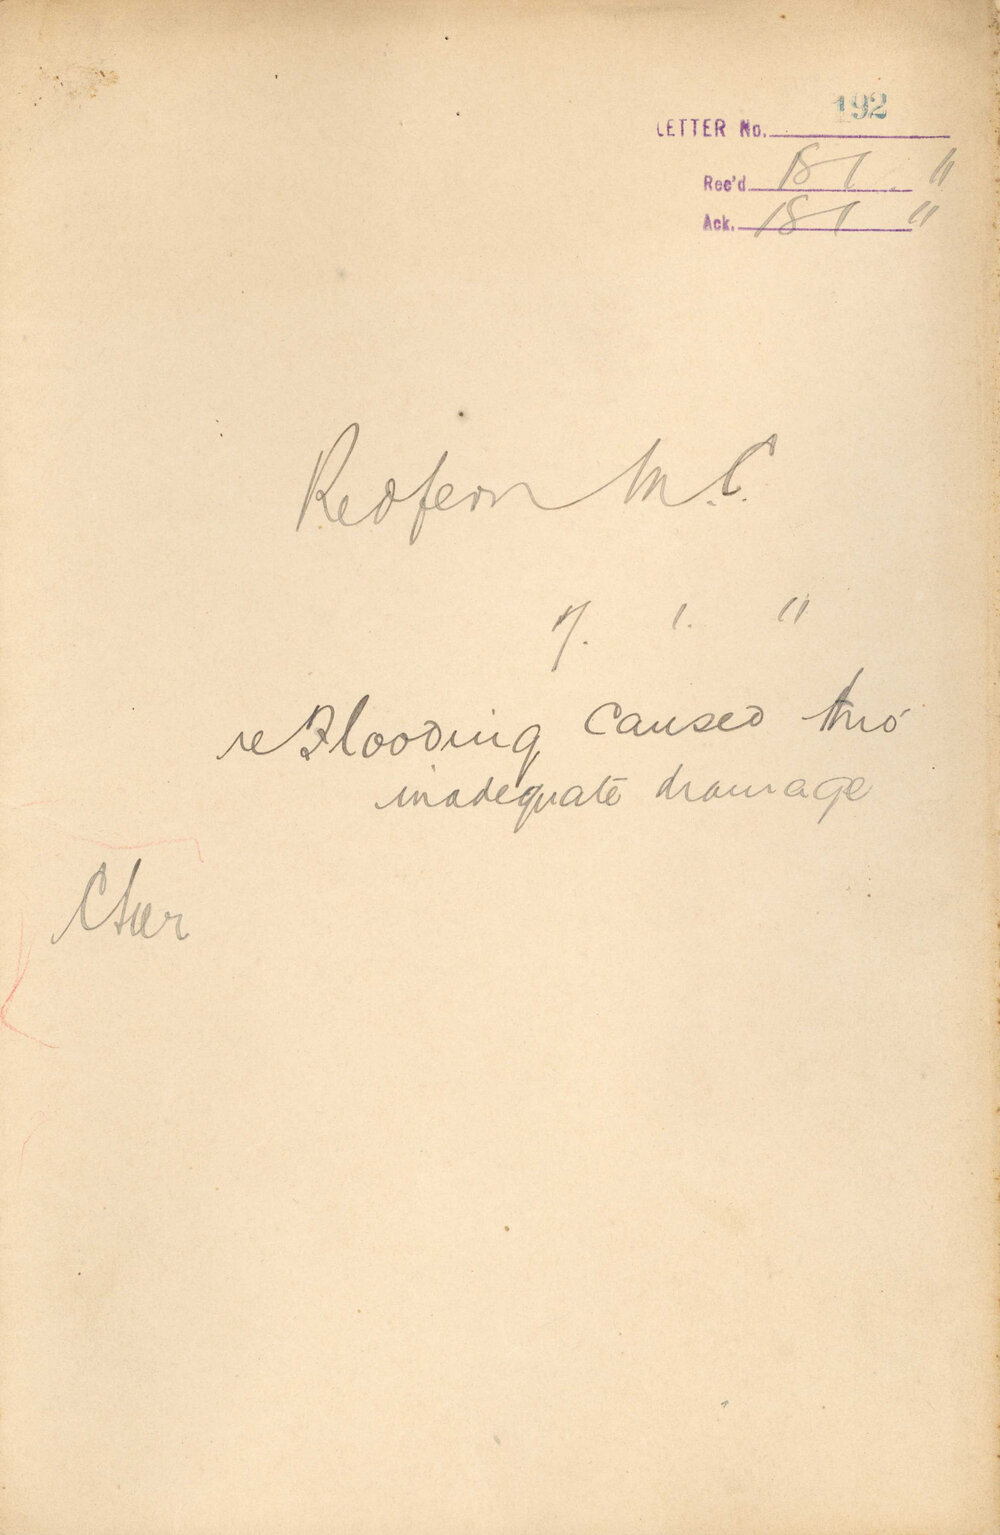 LETTER No. 192
Rec'd 18 1 11
Ack. 18 1 11
Redfern M.C.
17. 1. 11
re Flooding caused thro'
inadequate drainage